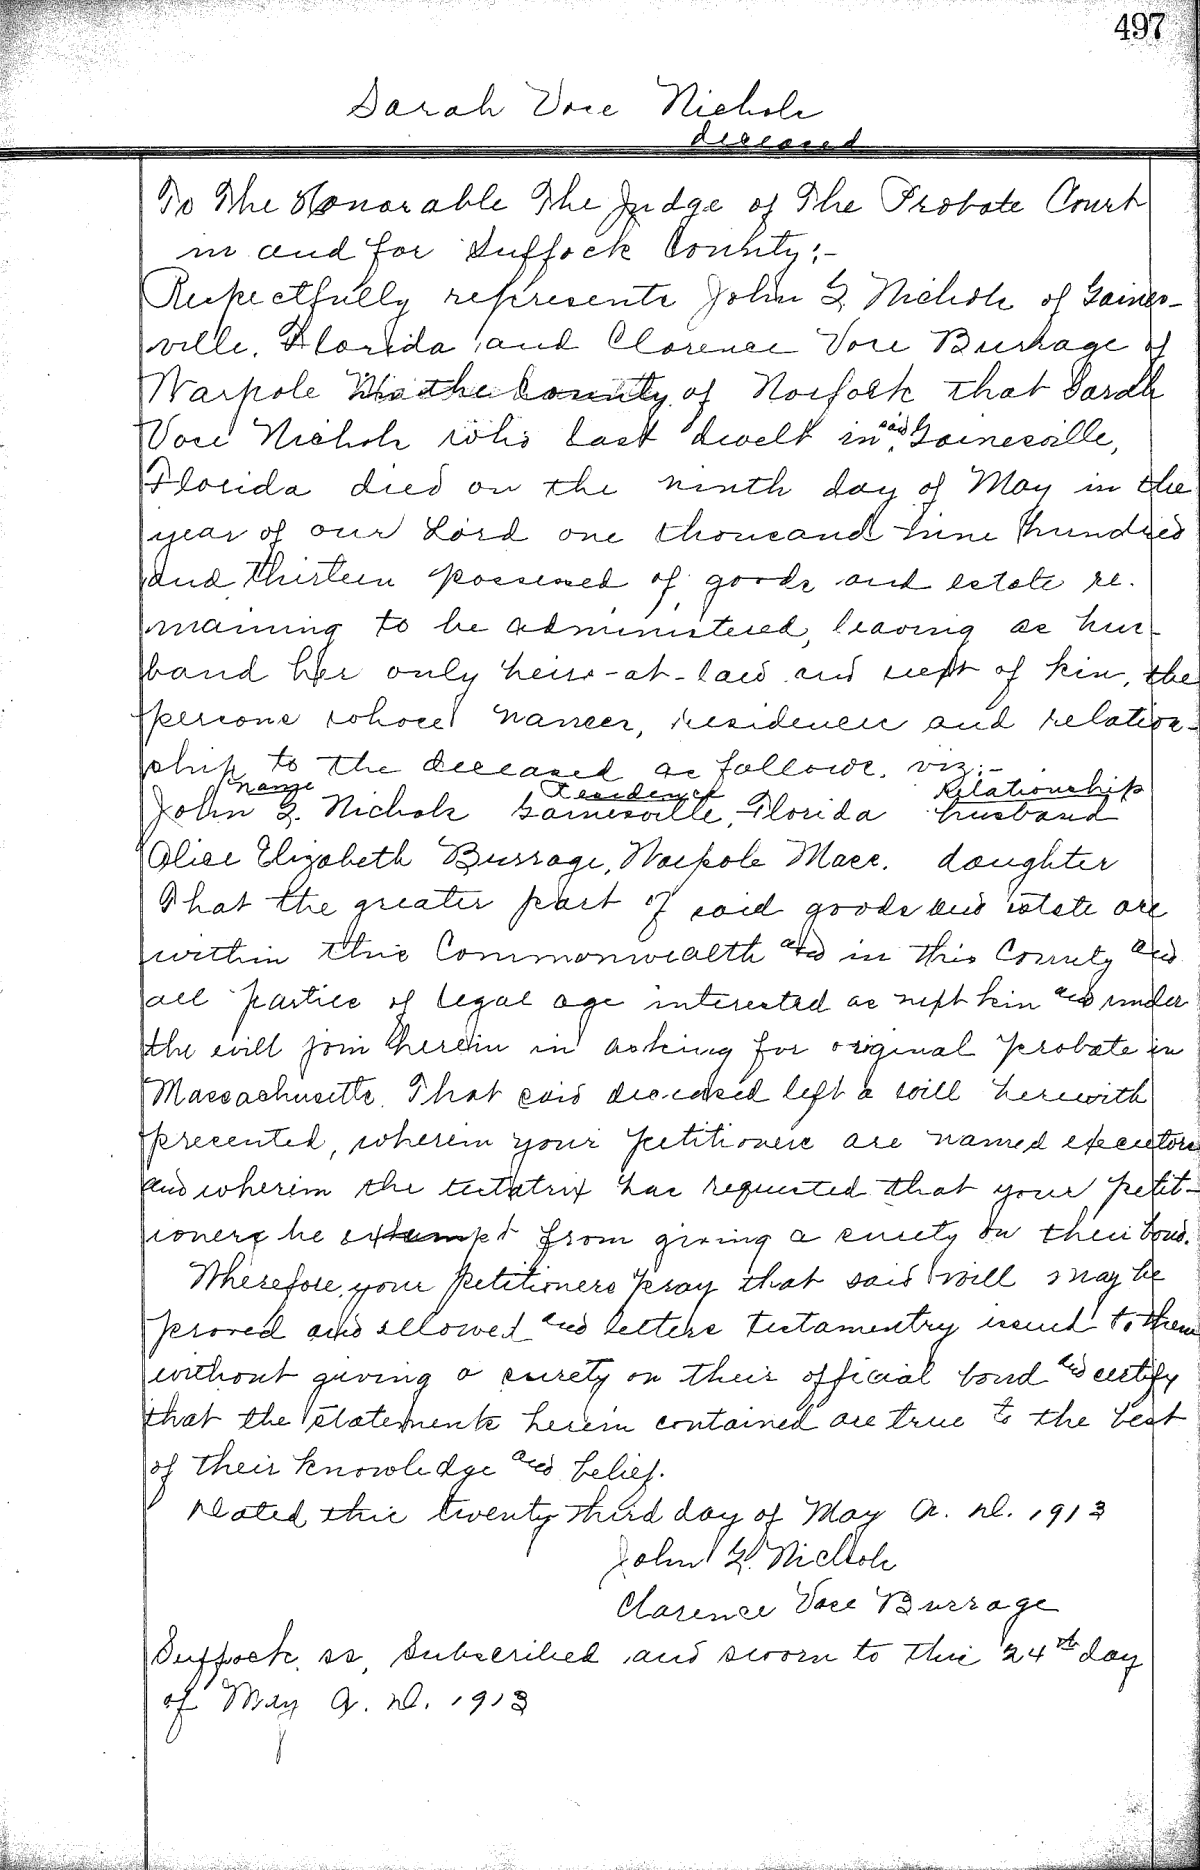 497
Sarah Vose Nichols
deceased
To The Honorable The Judge of The Probate Court
in and for Suffock County:-
Respectfully represents John G. Nichols of Gaines-
ville, Florida and Clarence Vose Burrage of
Warpole in the County of Norfork that Sarah
Vose Nichols who last dwelt in said Gainesville,
Florida died on the ninth day of May in the
year of our Lord one thousand nine hundred
and thirteen possessed of goods and estate re-
maining to be administered, leaving as hus-
band her only heirs-at-law and next of kin, the
persons whose names, residences and relation-
ship to the deceased as follows. viz:-
Name Residence Relationship
John G. Nichols Gainesville, Florida husband
Alice Elizabeth Burrage, Warpole Mass. daughter
That the greater part of said goods and estate are
within this Commonwealth and in this County and
all parties of legal age interested as next kin and under
the will join herein in asking for original probate in
Massachusetts. That said deceased left a will herewith
presented, wherein your petitioners are named executors
and wherein the testatrix has requested that your petit-
ioners be exempt from giving a surety on their bond.
Wherefore, your petitioners pray that said will may be
proved and allowed and letters testamentry issued to them
without giving a surety on their official bond and certify
that the statements herein contained are true to the best
of their knowledge and belief.
Dated this twenty third day of May A. D. 1913
John G. Nichols
Clarence Vose Burrage
Suffock, ss, Subscribed and sworn to this 24th day
of May A. D. 1913